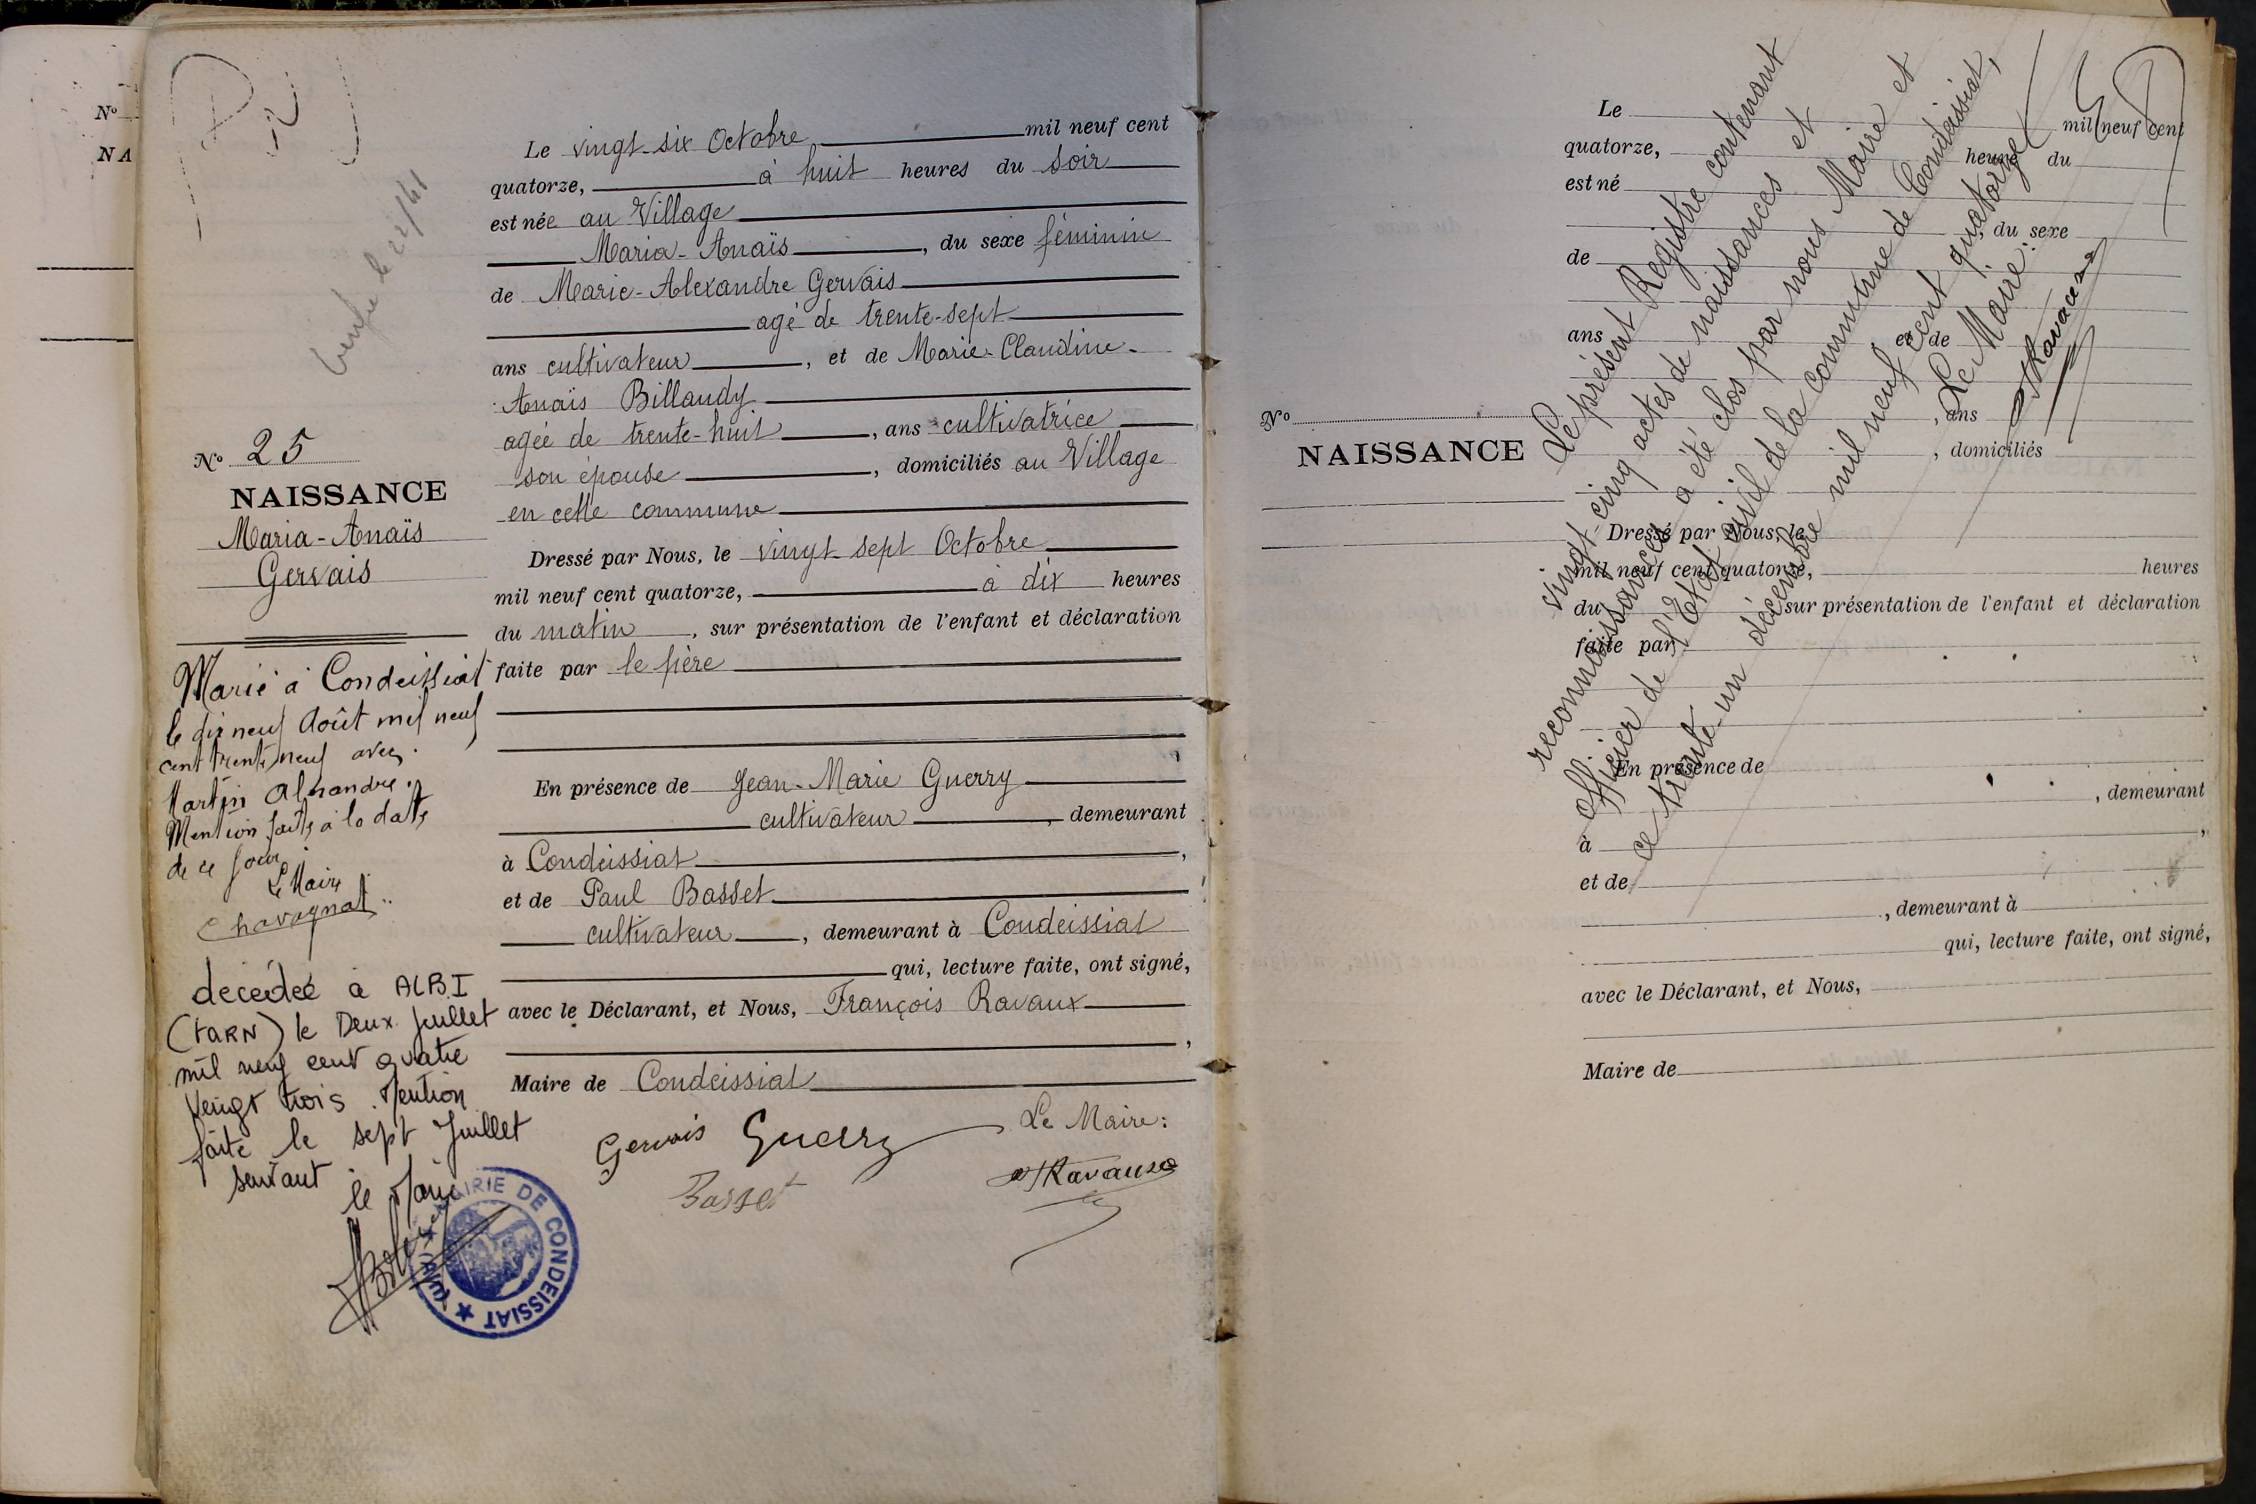 Nº
NA
vérifié le 22/41
Nº 25
NAISSANCE
Maria-Anaïs
Gervais
Marié à Condeissiat
le dix neuf Août mil neuf
cent trente neuf avec
Martin Alexandre.
Mention faite à la date
de ce jour
Le Maire
Chavagnat
decédeé à ALBI
(TARN) le Deux Juillet
mil neuf cent quatre
vengt trois. Mention
faite le sept Juillet
suivant
le Maire
MAIRIE DE CONDEISSIAT (Ain)
Le vingt-six Octobre mil neuf cent
quatorze, à huit heures du soir
est née au Village
Maria-Anaïs, du sexe féminin
de Marie-Alexandre Gervais
agé de trente-sept
ans cultivateur, et de Marie-Claudine-
Anaïs Billaudy
agée de trente-huit, ans cultivatrice
son épouse, domiciliés au Village
en cette commune
Dressé par Nous, le vingt-sept Octobre
mil neuf cent quatorze, à dix heures
du matin, sur présentation de l'enfant et déclaration
faite par le père
En présence de Jean-Marie Guerry
cultivateur, demeurant
à Condeissiat,
et de Paul Basset
cultivateur, demeurant à Condeissiat
qui, lecture faite, ont signé,
avec le Déclarant, et Nous, François Ravaux
,
Maire de Condeissiat
Gervais Guerry Le Maire:
Basset Ravaux
Le mil neuf cent
quatorze, heures du
est né
du sexe
de
ans et de
, ans
Nº
NAISSANCE
, domiciliés
Dressé par Nous, le
mil neuf cent quatorze, heures
du sur présentation de l'enfant et déclaration
faite par
En présence de
, demeurant
à ,
et de
, demeurant à
qui, lecture faite, ont signé,
avec le Déclarant, et Nous,
Maire de
Le présent Registre contenant
vingt-cinq actes de naissances et
reconnaissances a été clos par nous Maire et
Officier de l'Etat civil de la commune de Condeissiat,
ce trente-un décembre mil neuf cent quatorze
Le Maire:
Ravaux